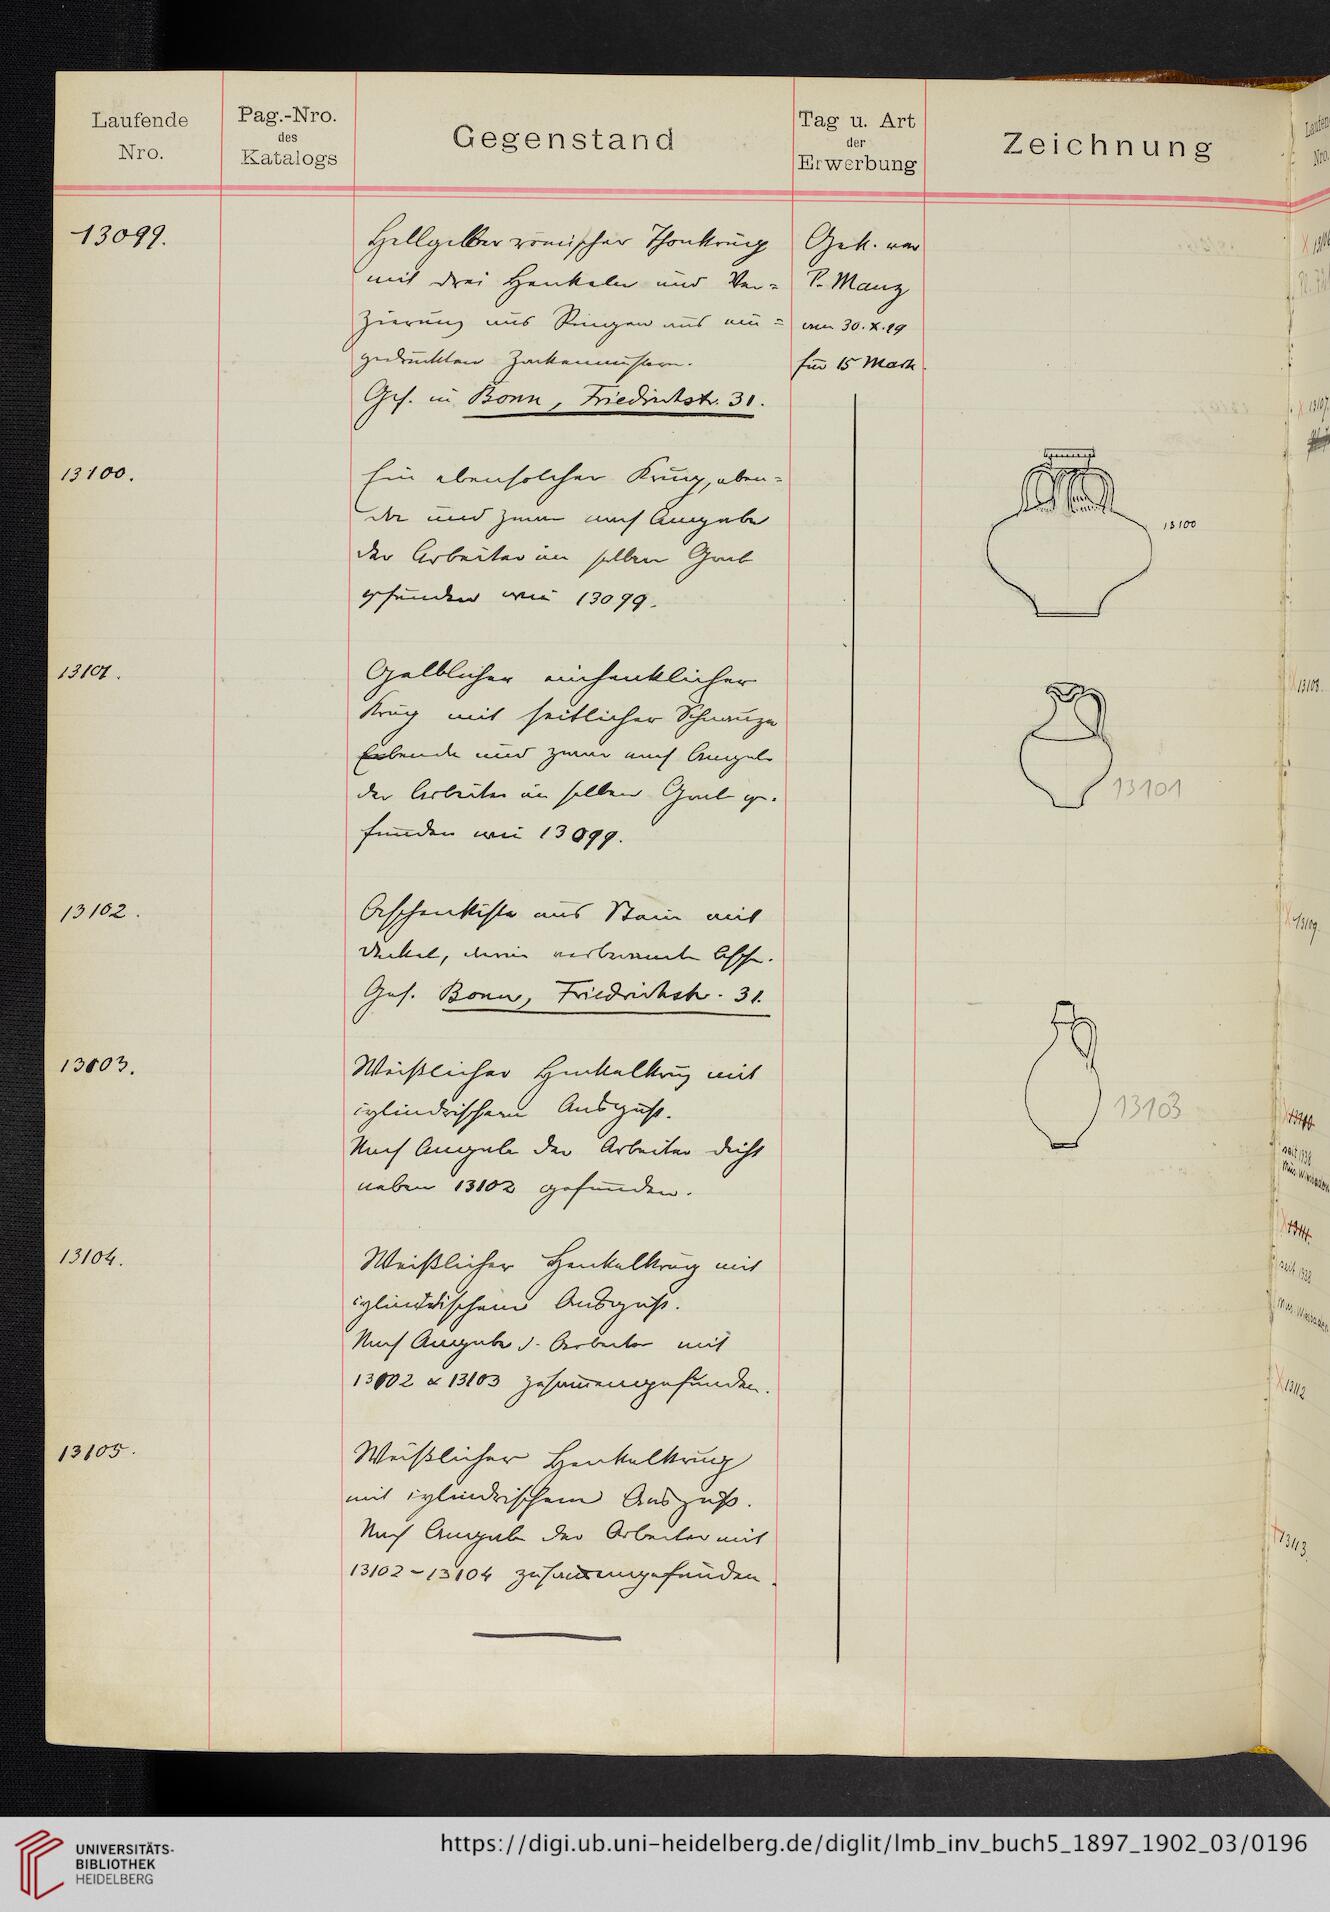 Laufende
Nro.
Pag.-Nro.
des
Katalogs
Gegenstand
Tag u. Art
der
Erwerbung
Zeichnung
13099.
Hellgelber römischer Thonkrug
mit drei Henkeln und Ver=
zierung aus Ringen aus ein=
gedrückten Zackenmustern.
Gef. in Bonn, Friedrichstr. 31.
Gek. von
P. Manz
am 30.X.99
für 15 Mark.
13100.
Ein ebensolcher Krug, eben=
da und zwar nach Angabe
der Arbeiter im selben Grab
gefunden wie 13099.
13100
13101.
Gelblicher einhenklicher
Krug mit seitlicher Schnauze
Ebenda und zwar nach Angabe
der Arbeiter im selben Grab ge-
funden wie 13099.
13101
13102.
Aschenkiste aus Stein mit
Deckel, darin verbrannte Asche.
Gef. Bonn, Friedrichstr. 31.
13103.
Weißlicher Henkelkrug mit
cylindrischem Ausguß.
Nach Angabe der Arbeiter dicht
neben 13102 gefunden.
13103
13104.
Weißlicher Henkelkrug mit
cylindrischem Ausguß.
Nach Angabe d. Arbeiter mit
13102 & 13103 zusammengefunden.
13105.
Weißlicher Henkelkrug
mit cylindrischem Ausguß.
Nach Angabe der Arbeiter mit
13102-13104 zusammengefunden.
Laufen
Nro.
13107
13108.
13109.
13110
seit 1938
Mus. Wiesbaden
13111.
seit 1938
Mus. Wiesbaden
13112
13113.
UNIVERSITÄTS-
BIBLIOTHEK
HEIDELBERG
https://digi.ub.uni-heidelberg.de/diglit/lmb_inv_buch5_1897_1902_03/0196